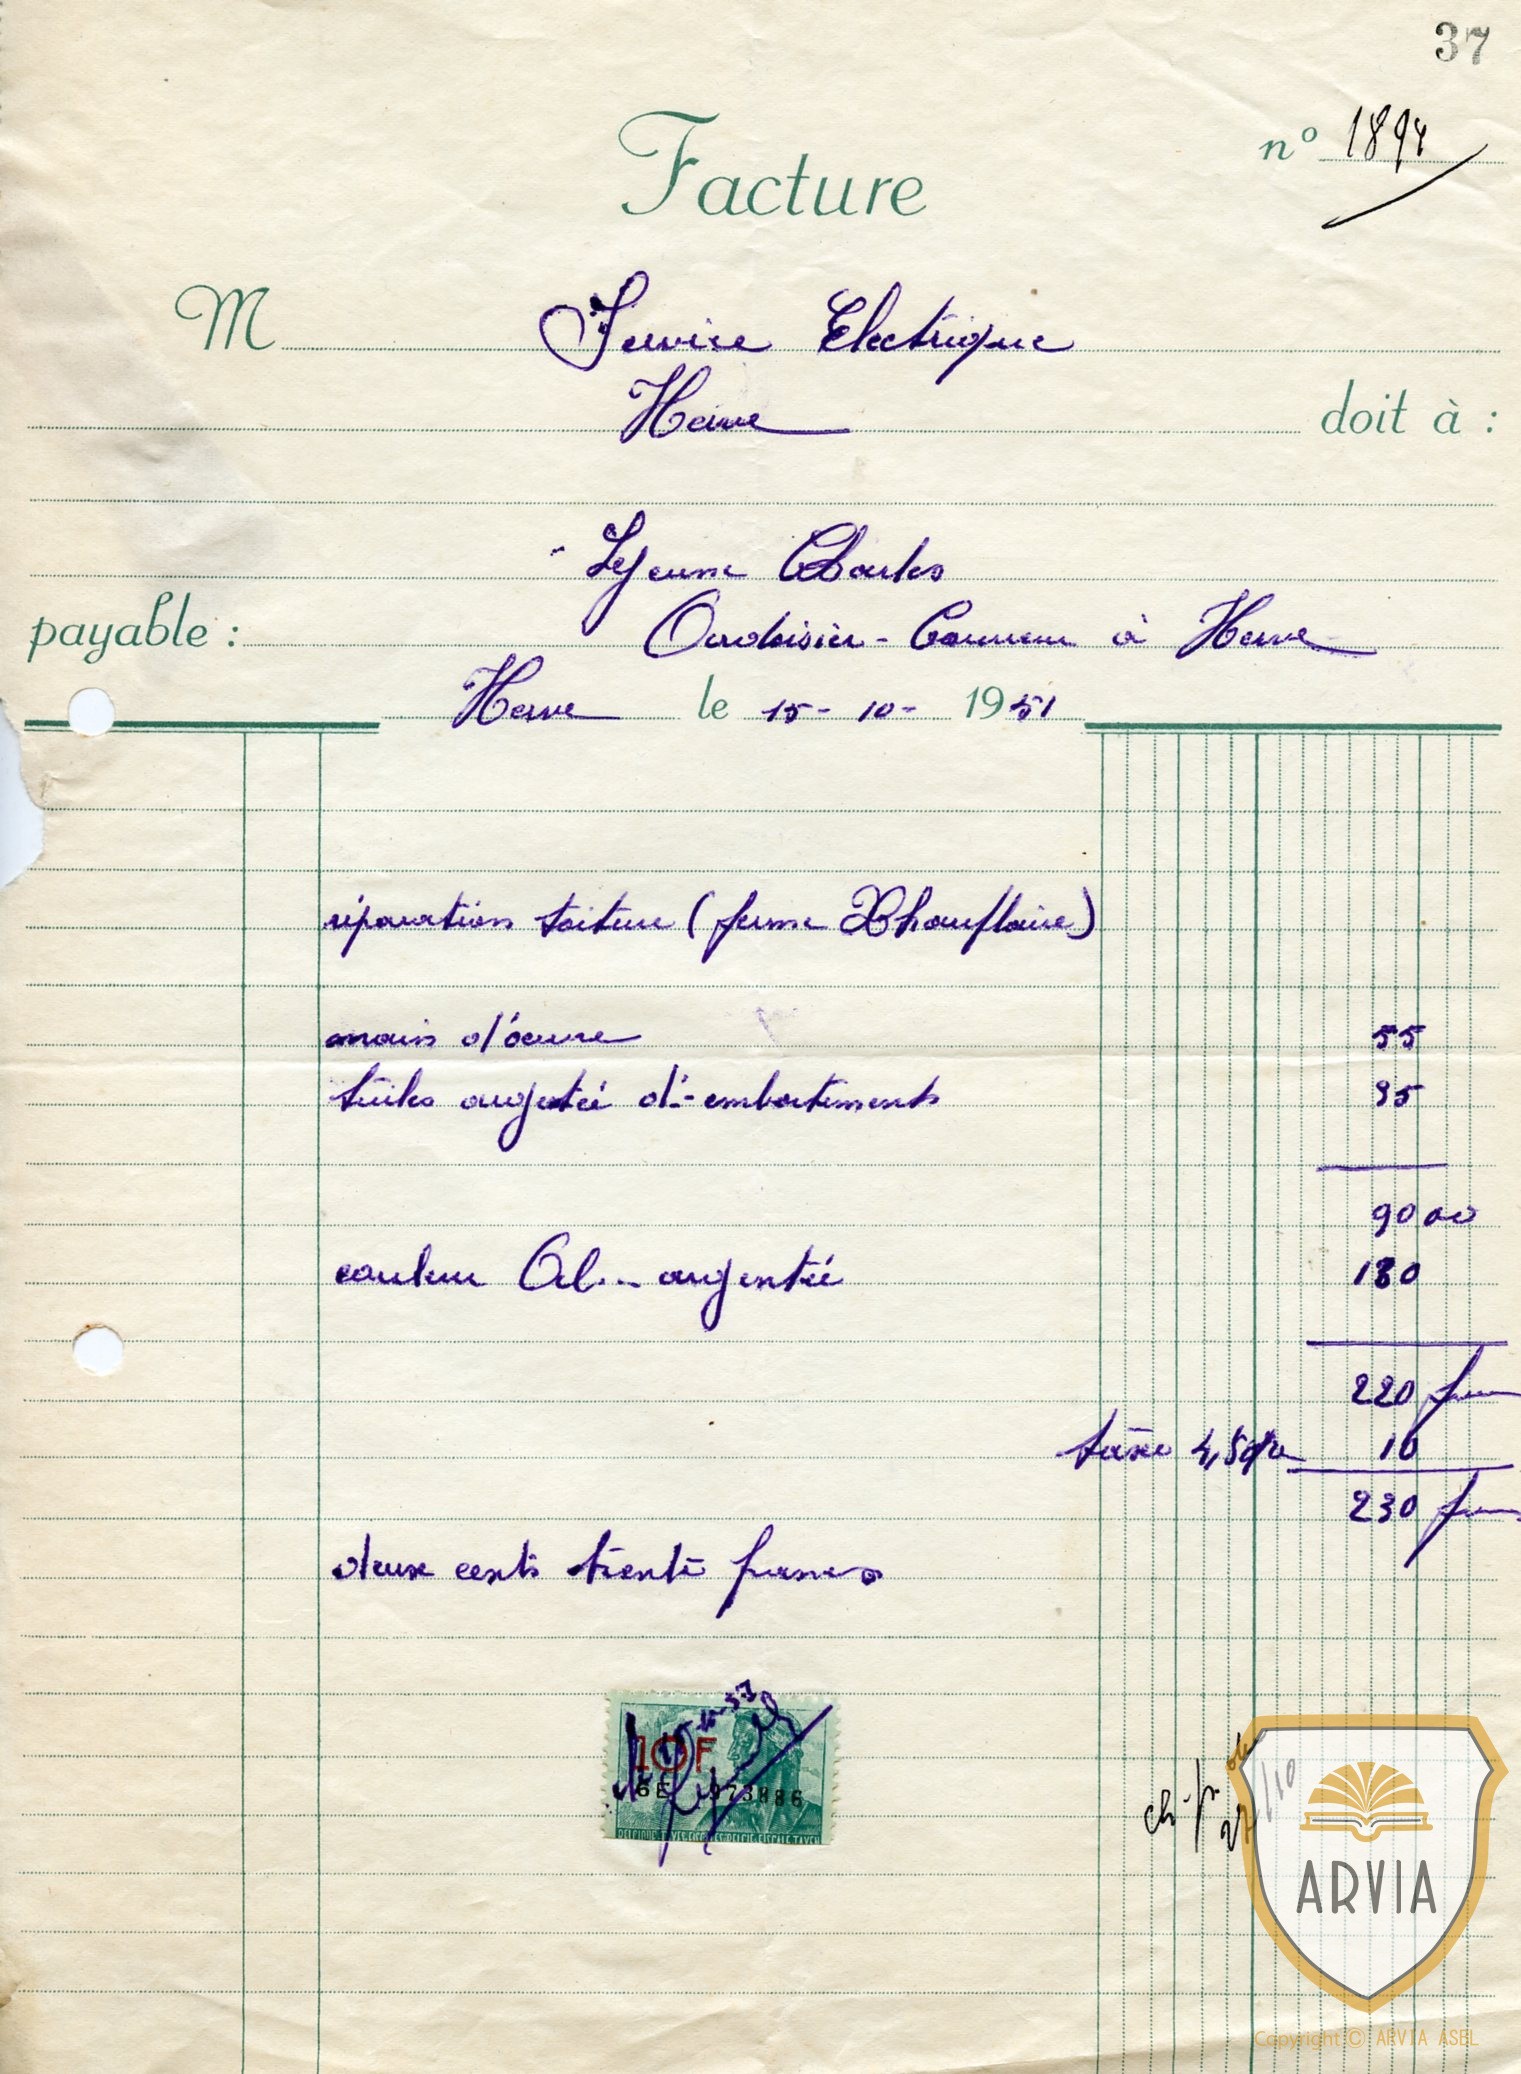 37
nº 1894
Facture
M Service Electrique
Herve doit à :
Lejeune Charles
payable : Ardoisier - Couvreur à Herve
Herve le 15- 10- 1951
réparation toiture (ferme Xhauflaire)
main d'oeuvre 55
tuiles argentée d'-emboitements 35
90 00
couleur Al.- argentée 130
220 francs
taxe 4,50% 10
230 francs
deux cents trente francs
10F
6E 973886
ARVIA
Copyright © ARVIA ASBL